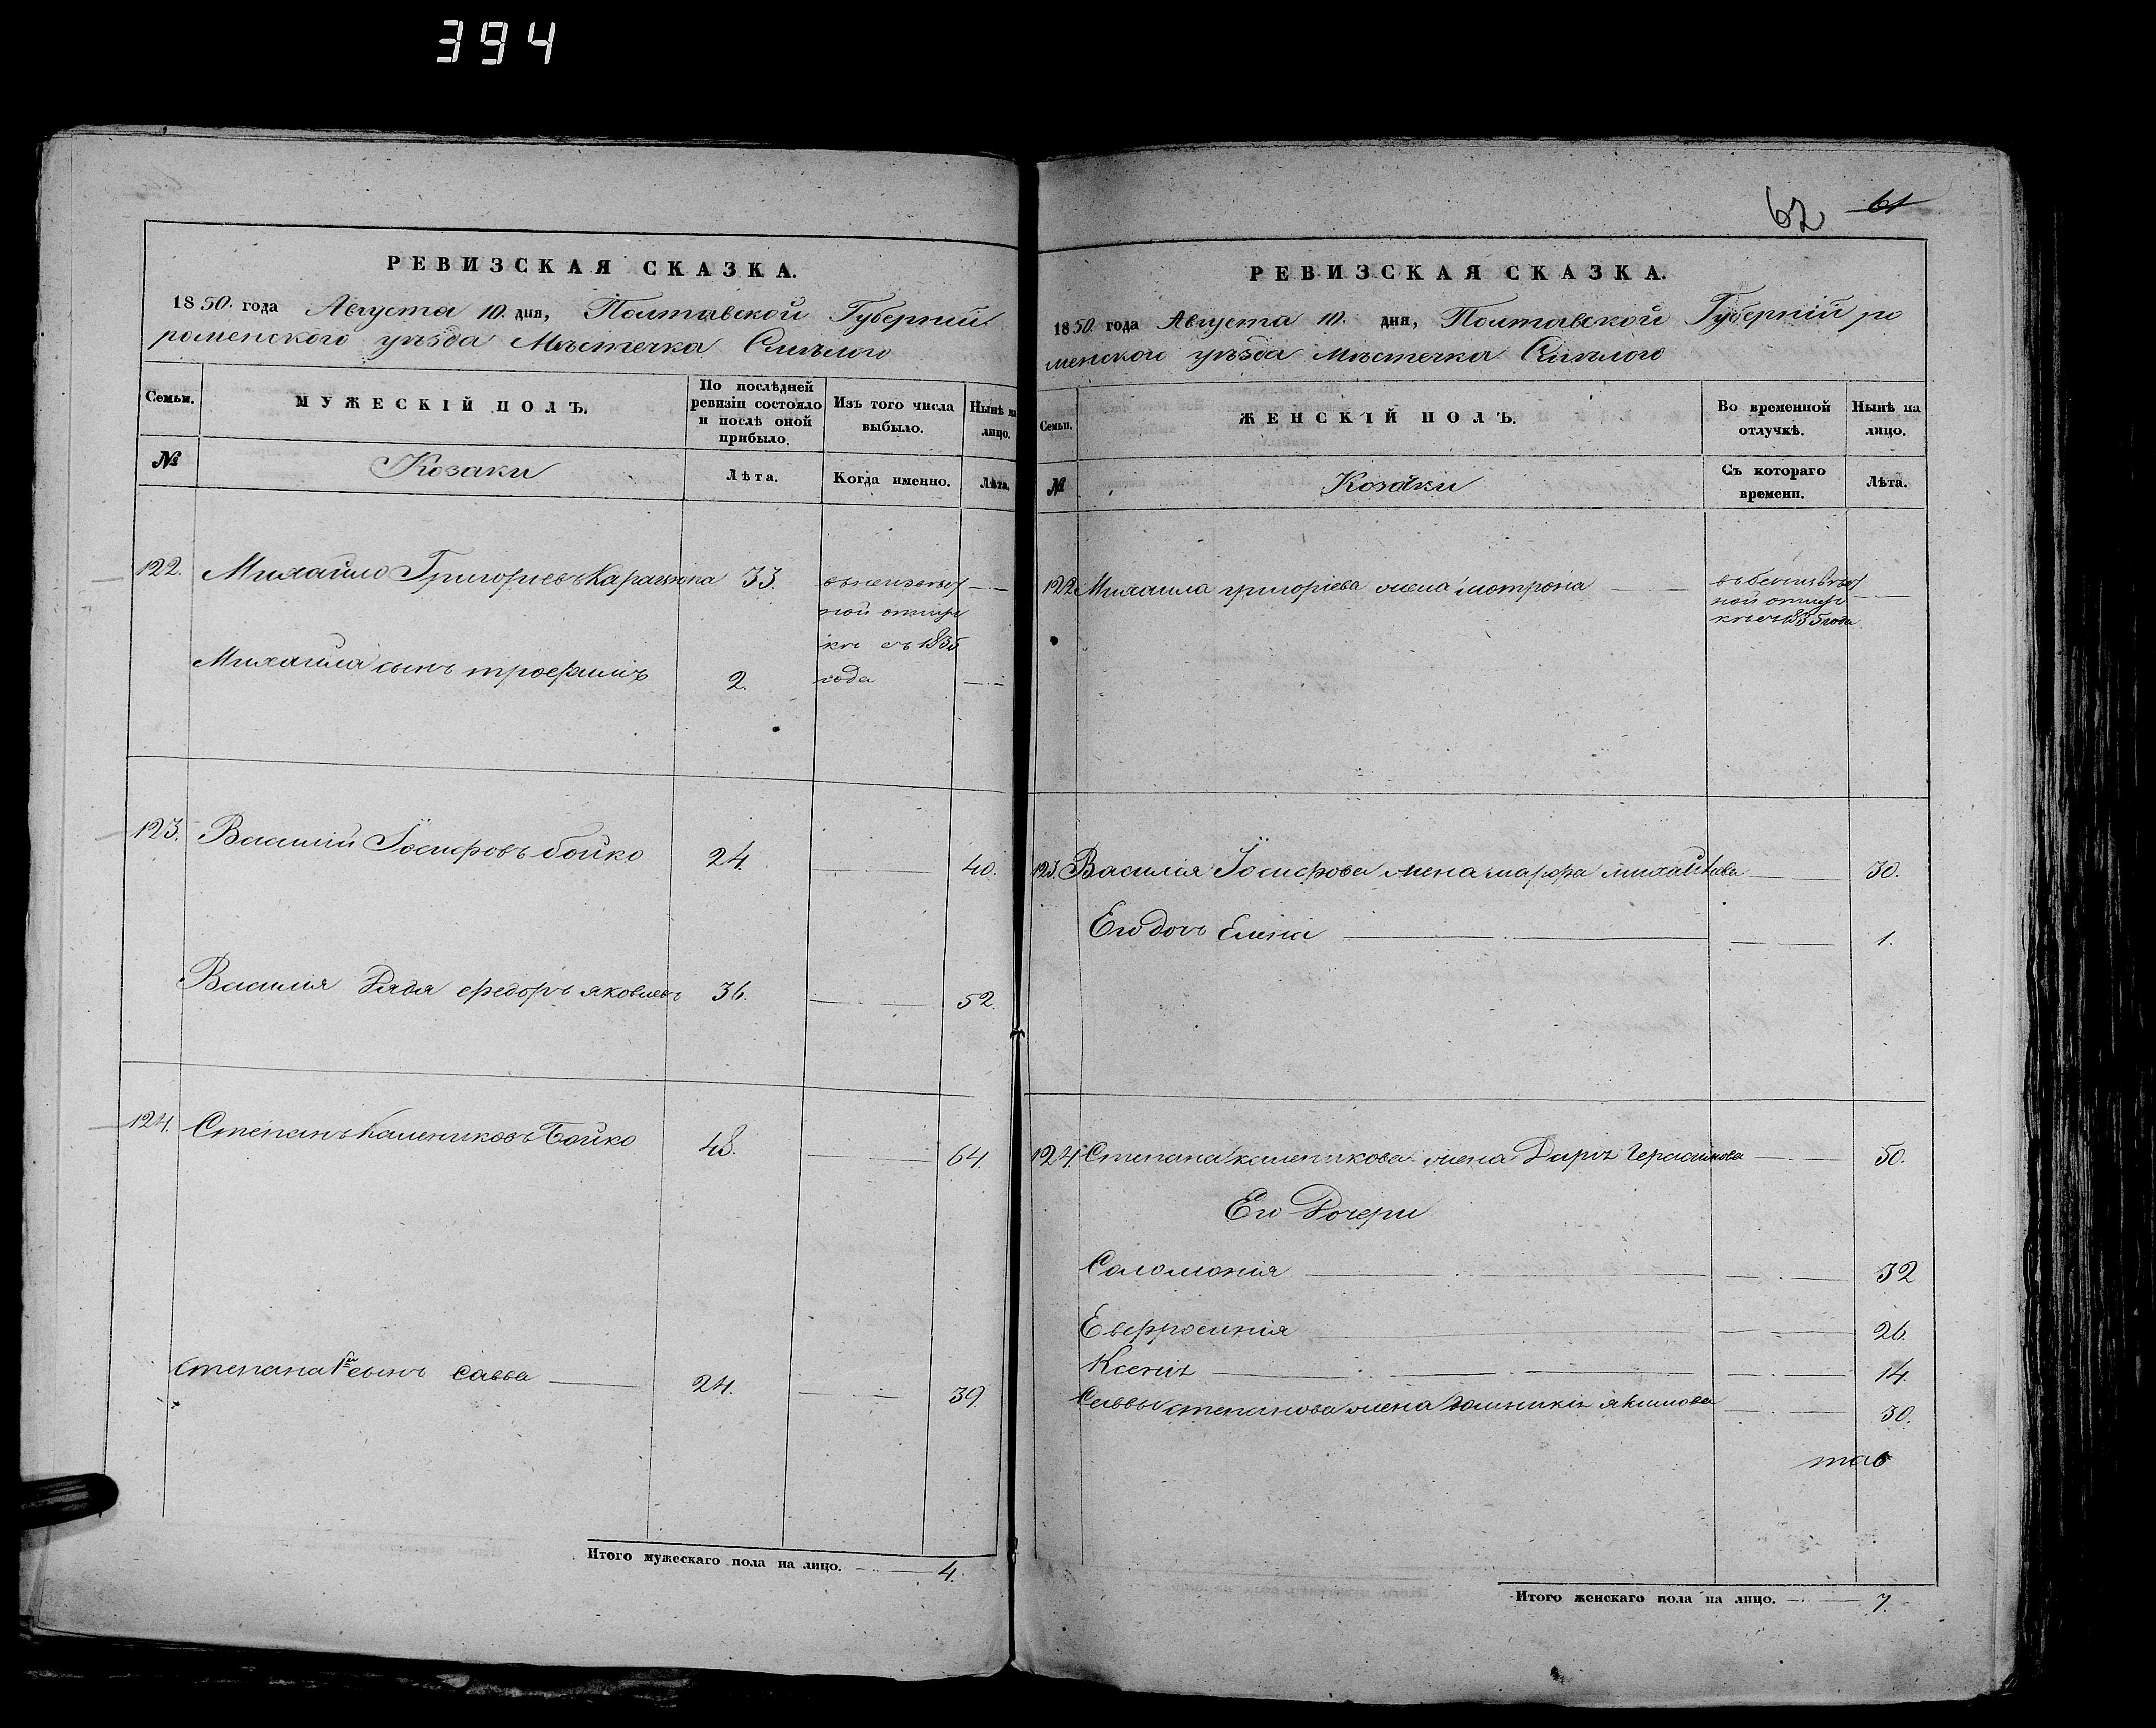 394
РЕВИЗСКАЯ СКАЗКА.
1850. года Августа 10. дня, Полтавской Губерніи
роменского уѣзда Мѣстечка Смѣлого
Семьи. МУЖЕСКІЙ ПОЛЪ. По послѣдней ревизіи состояло и послѣ оной прибыло. Изъ того числа выбыло. Нынѣ на лицо.
№ Козаки Лѣта. Когда именно. Лѣта.
122. Михайло Григорievъ 33. въ безъизвѣст
ной отлуч
кѣ съ 1835
года
Михаила сынъ трофимъ 2.
123. Василій Іосифовъ бойко 24. 40.
Василія Дядя федоръ яковлевъ 36. 52.
124. Степанъ Калениковъ Бойко 48. 64.
Степана 1й сынъ савва 24. 39.
Итого мужескаго пола на лицо. 4.
62 61
РЕВИЗСКАЯ СКАЗКА.
1850 года Августа 10. дня, Полтавской Губерніи ро
менского уѣзда мѣстечка Смѣлого
Семьи. ЖЕНСКІЙ ПОЛЪ. Во временной отлучкѣ. Нынѣ на лицо.
№ Козаки Съ котораго времени. Лѣта.
122 Михаила григоріева жена мотрона въ безъизвѣст
ной отлуч
кѣ съ 1835 года
123. Василія Іосифова жена марфа михайлова 30.
Его дочь Елена 1.
124. Степана каленикова жена Дарія Герасимова 50.
Его Дочери
Соломонія 32
Евфросинія 26.
Ксенія 14.
Саввы степанова жена домникія якимова 30.
Итого женскаго пола на лицо. 7.